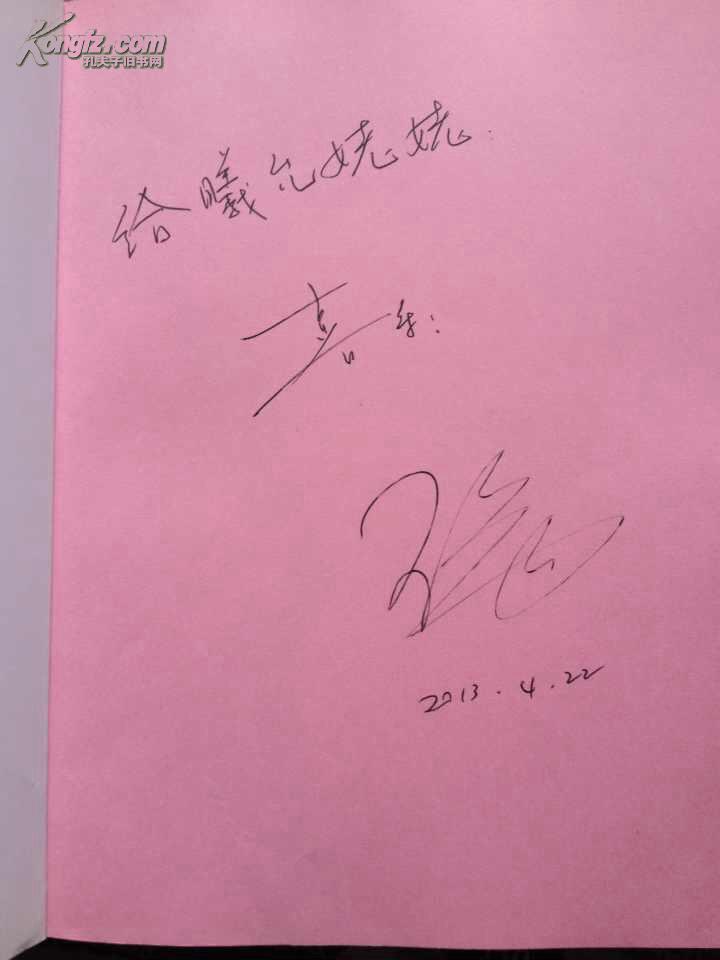 Kongfz.com
孔夫子旧书网
给曦允姥姥：
喜乐：
2013.4.22